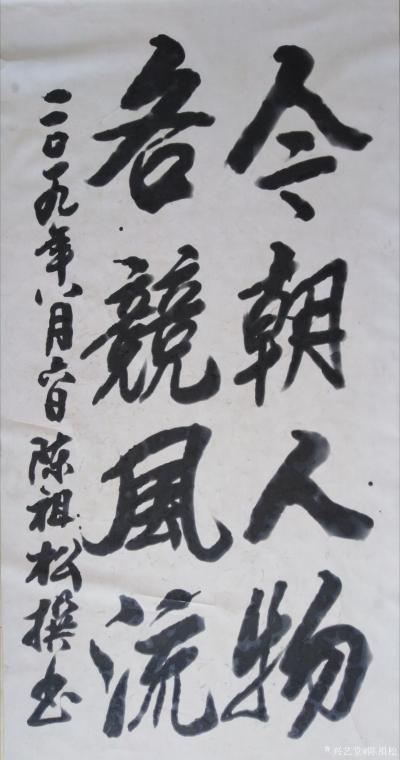 今朝人物
各競風流
二〇一九年八月六日陈祖松撰书
兴艺堂@陈祖松